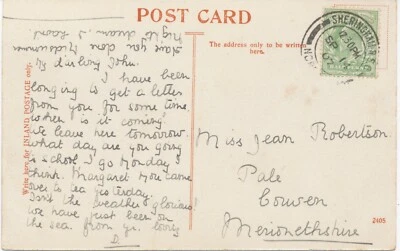 POST CARD
The only to be written here.
Write here for INLAND POSTAGE only
Have you done you Midsummer
Night's dream. I loved
My darling John.
I have been
longing to get a letter
from you for some time.
when is it coming?
we leave here tomorrow.
what day are you going
to school I go Monday I
think. Margaret came
over to tea yesterday.
Isn't the weather glorious!
we have just been on
the sea. from yr. loving
D
SHERINGHAM
12.30PM
SP
07
Miss Jean Robertson.
Palé
Corwen
Merionethshire
2405